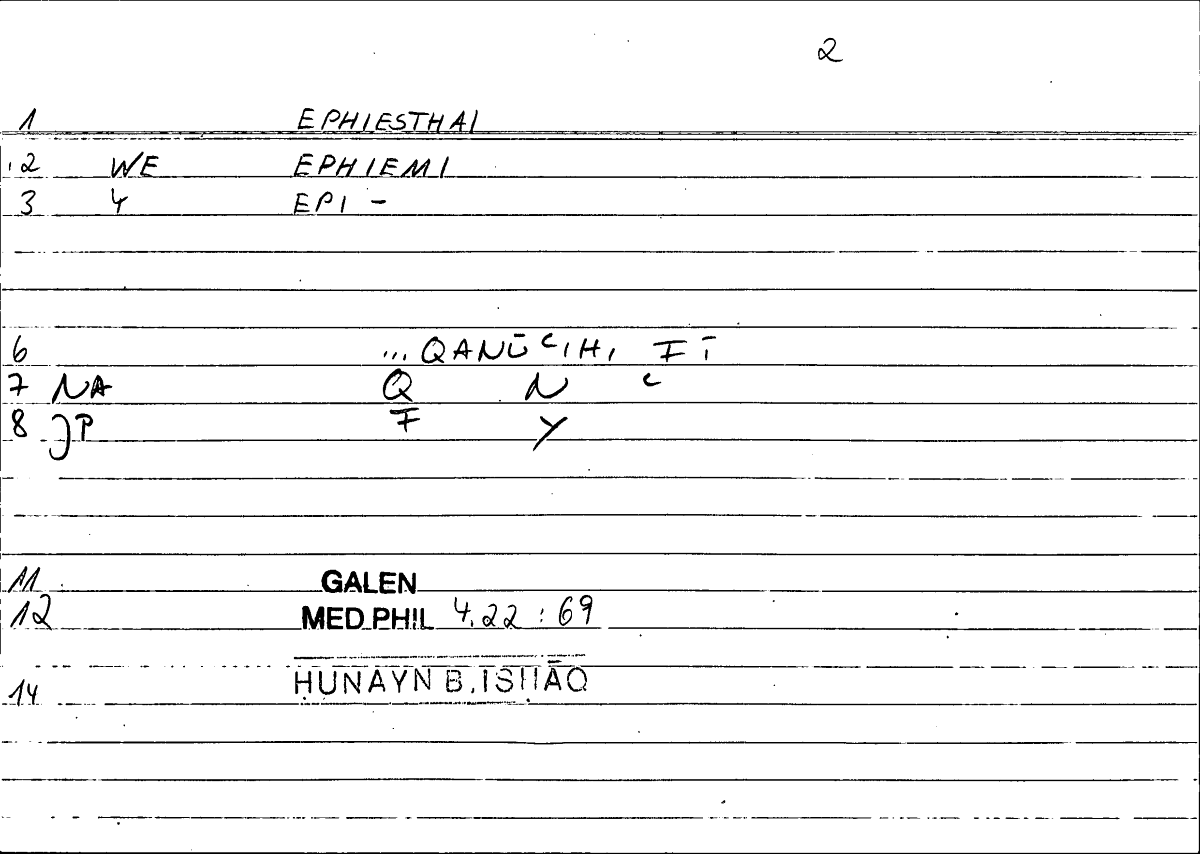 2
1 EPHIESTHAI
2 WE EPHIEMI
3 4 EPI -
6 ... QANŪʿIHI FĪ
7 NA Q N ʿ
8 JP F Y
11 GALEN
12 MED PHIL 4.22 : 69
14 ḤUNAYN B. ISḤĀQ